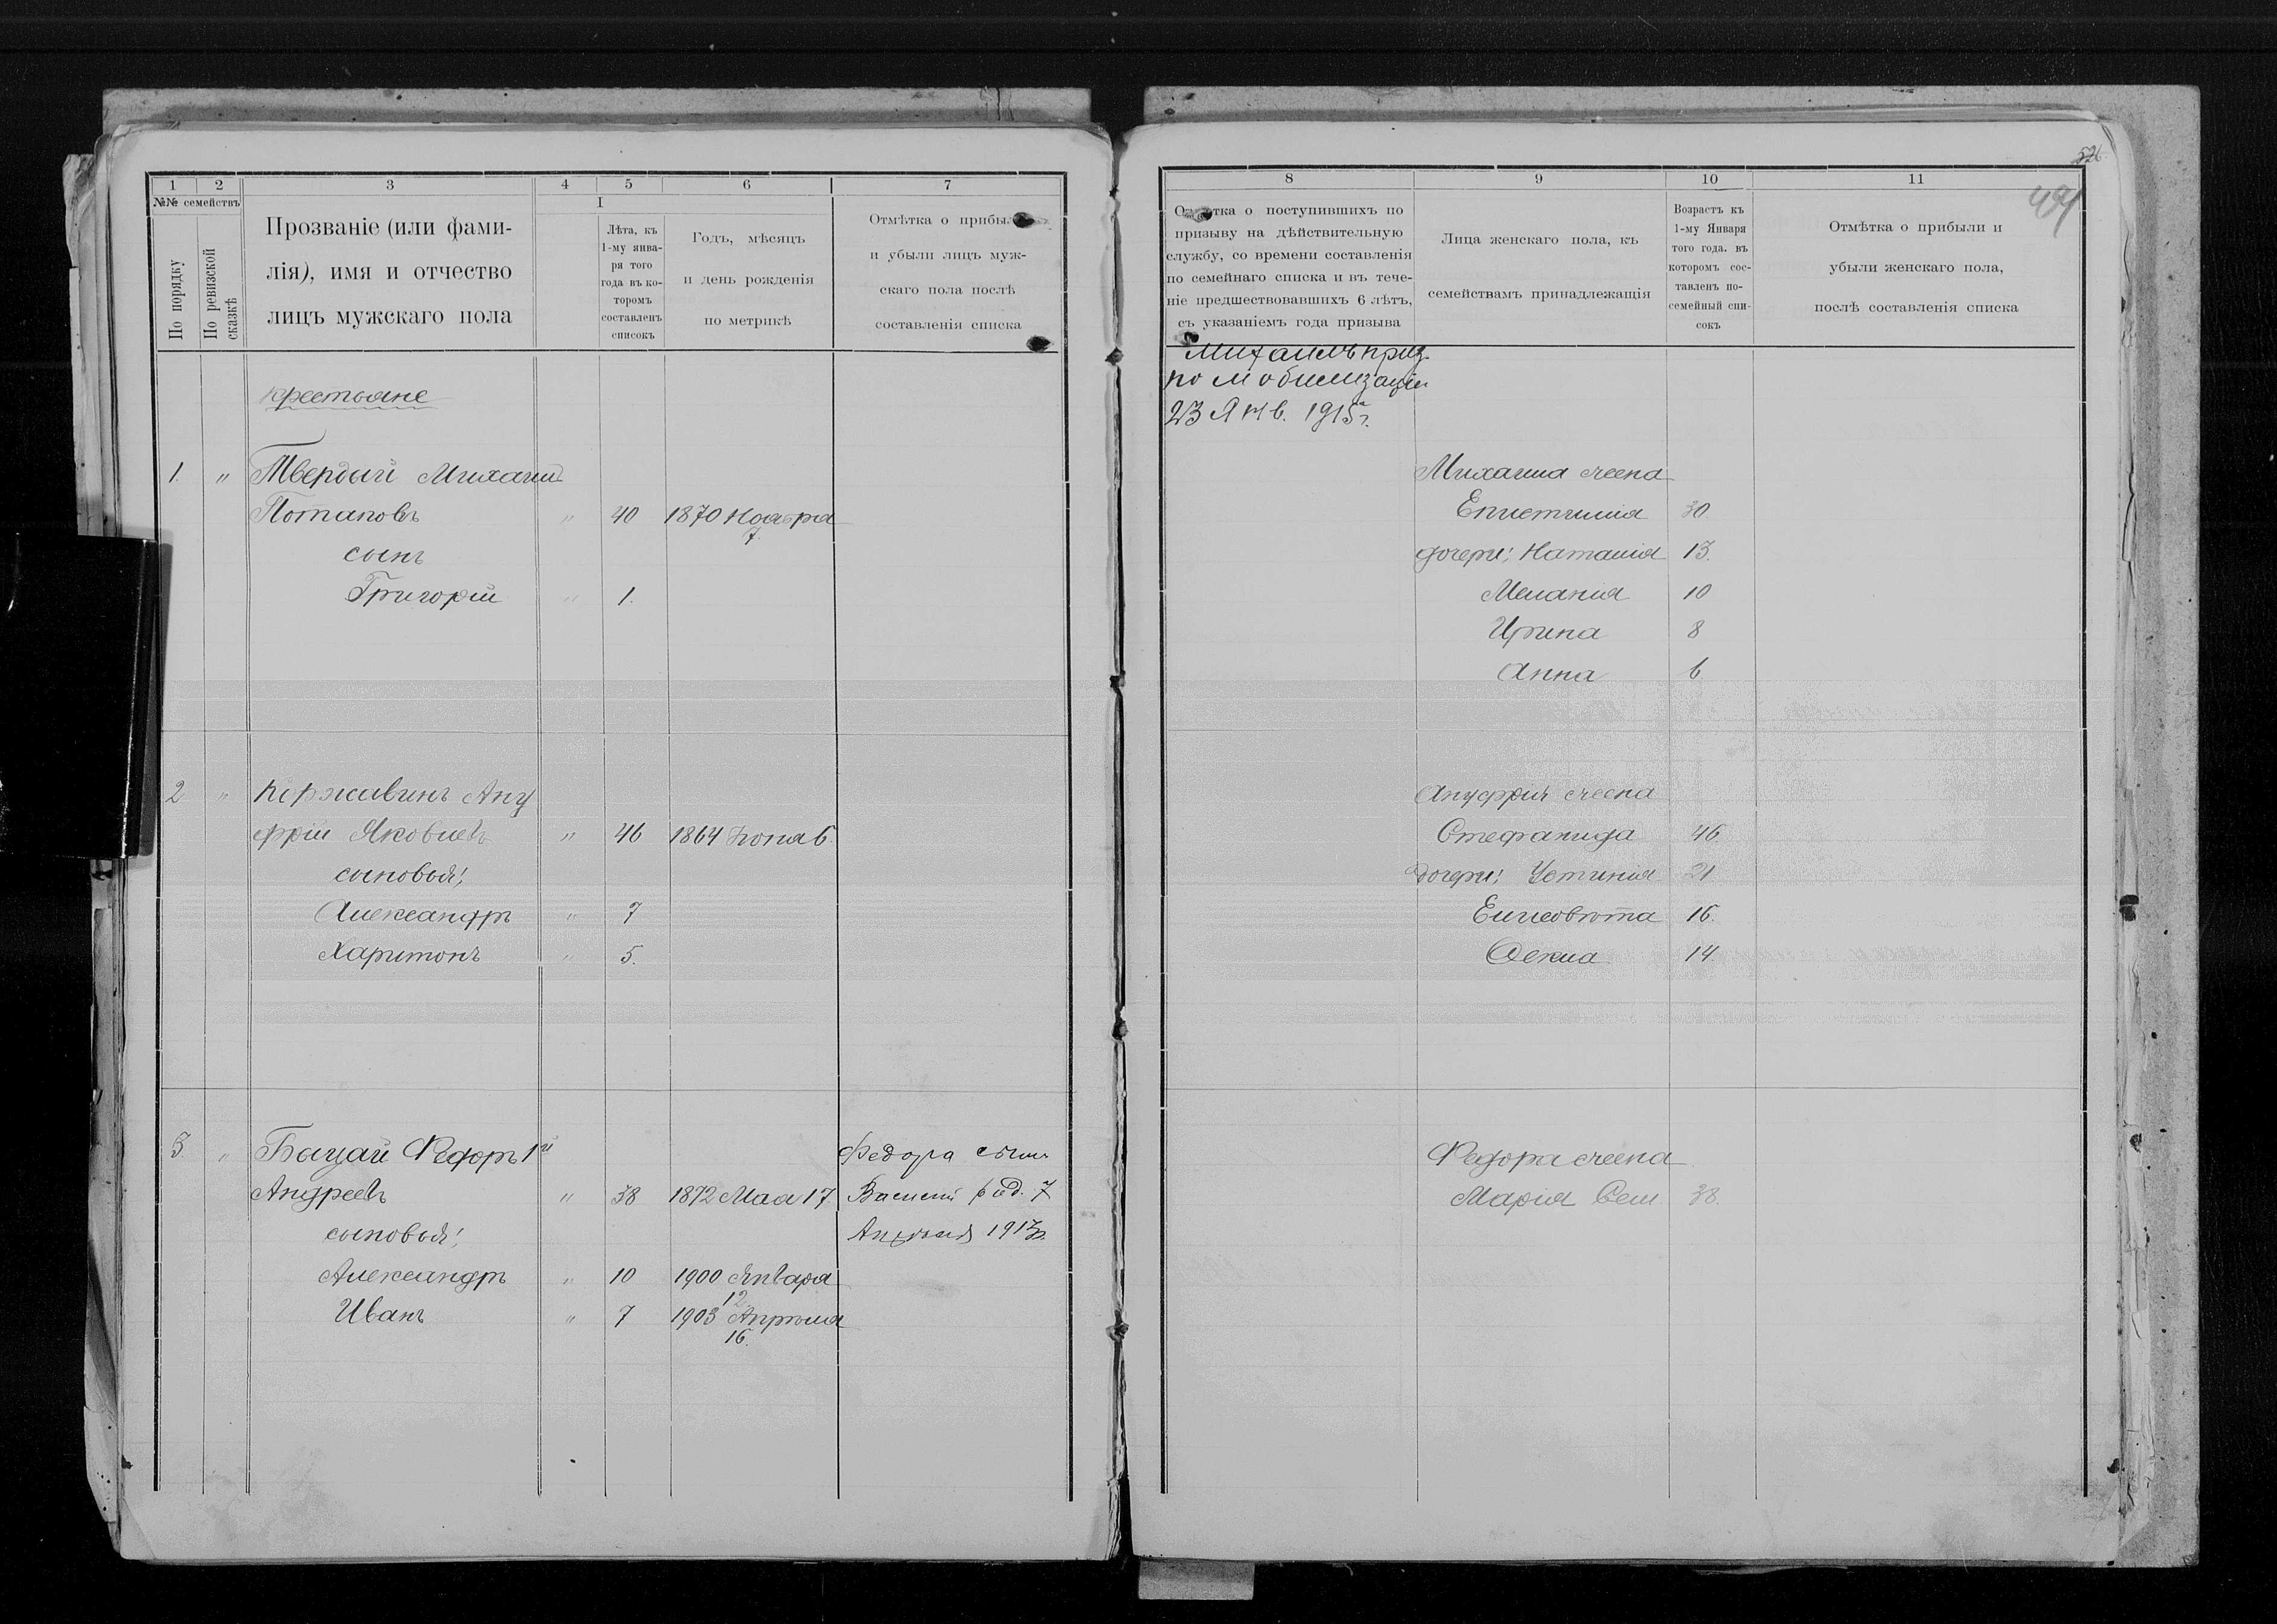 1 2 3 4 5 6 7
№№ семействъ
По порядку
По ревизской сказкѣ
Прозваніе (или фами-
лія), имя и отчество
лицъ мужскаго пола
I
Лѣта, къ
1-му янва-
ря того
года въ ко-
торомъ
составленъ
списокъ
Годъ, мѣсяцъ
и день рожденія
по метрикѣ
Отмѣтка о прибы
и убыли лицъ муж-
скаго пола послѣ
составленія списка
крестьяне
1. " Твердый Михаил
Потаповъ " 40 1870 Ноября
7.
сынъ
Григорій " 1.
2 " Коржавинъ Ану
фрій Яковлевъ " 46 1864 Іюня 6.
сыновья:
Александръ " 7
Харитонъ " 5.
3. " Бацай Федоръ 1й
Федора сынъ
Андреевъ " 38 1872 Мая 17
Василій род. 7
сыновья:
Апрѣля 1913г.
Александръ " 10 1900 Января
12
Иванъ " 7 1903 Апрѣля
16.
526
8 9 10 11
Отмѣтка о поступившихъ по
призыву на дѣйствительную
службу, со времени составленія
по семейнаго списка и въ тече-
ніе предшествовавшихъ 6 лѣтъ,
съ указаніемъ года призыва
Лица женскаго пола, къ
семействамъ принадлежащія
Возрастъ къ
1-му Января
того года. въ
которомъ сос-
тавленъ по-
семейный спи-
сокъ
Отмѣтка о прибыли и
убыли женскаго пола,
послѣ составленія списка
Михаилъ приз.
по мобилизаціи
23 Янв. 1915 г.
Михаила жена
Епистимія 30
дочери: Наталія 13.
Меланія 10
Ирина 8
Анна 6
Ануфрія жена
Стефанида 46.
дочери: Устинія 21
Елисовѣта 16.
Фекла 14.
Федора жена
Марія Сем. 38.